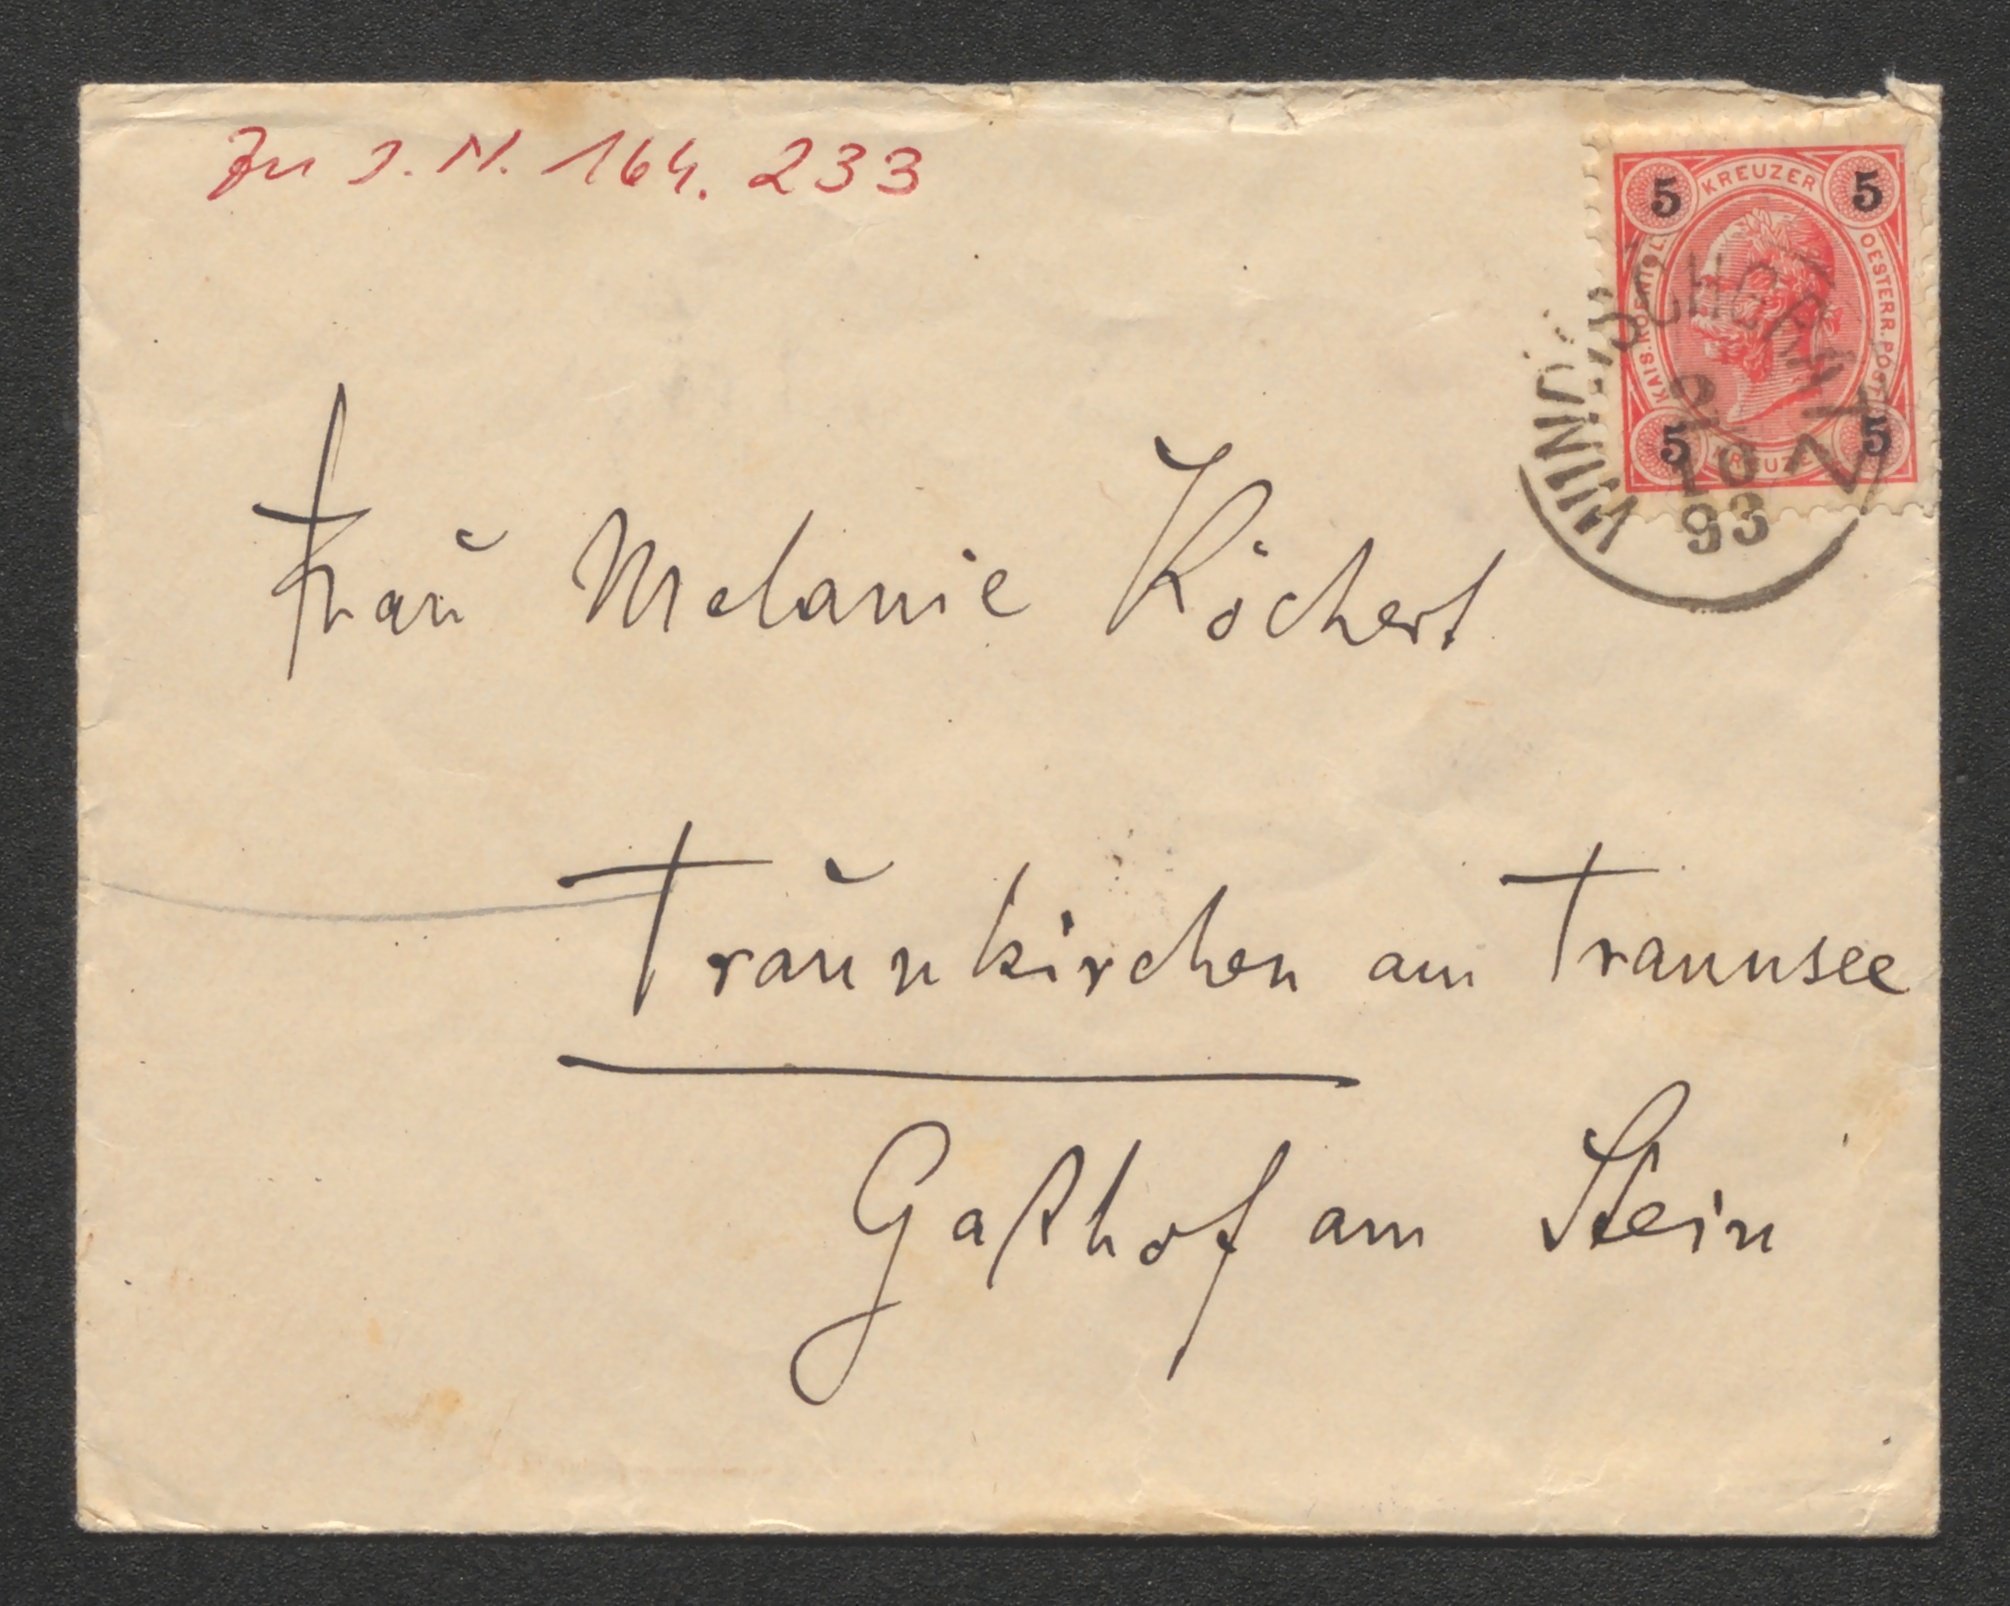 Zu I. N. 164. 233
5 KREUZER 5
KAIS. KOENIGL. OESTERR. POST
5 KREUZER 5
WINDISCHGRATZ
2
10
93
Frau Melanie Köchert
Traunkirchen am Traunsee
Gasthof am Stein